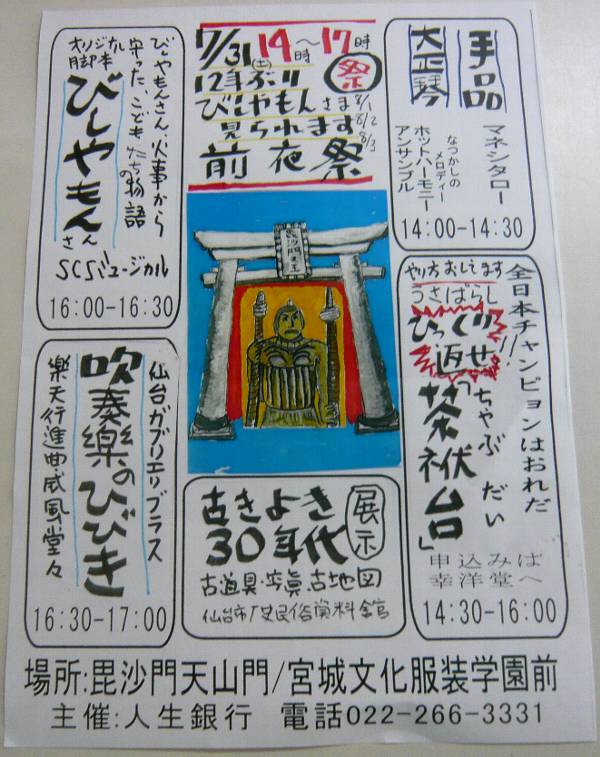 7/31(土)14時～17時
12年ぶり 祭
びしゃもんさま 8/1
見られます 8/2
8/3
前夜祭
手品
マネシタロー
大正琴
なつかしの
メロディー
ホットハーモニー
アンサンブル
14:00-14:30
びしゃもんさん、火事から
守った、こどもたちの物語
オリジナル
脚本
びしゃもんさん
SCSミュージカル
16:00-16:30
毘沙門天王
全日本チャンピョンはおれだ!!
やり方おしてます
うさばらし
ひっくり
返せ
「ちゃぶだい
茶袱台」
申込みは
幸洋堂へ
14:30-16:00
仙台ガブリエリブラス
吹奏楽のひびき
楽天行進曲威風堂々
16:30-17:00
展示
古きよき
30年代
古道具・写真・古地図
仙台市歴史民俗資料館
場所:毘沙門天山門/宮城文化服装学園前
主催:人生銀行 電話022-266-3331